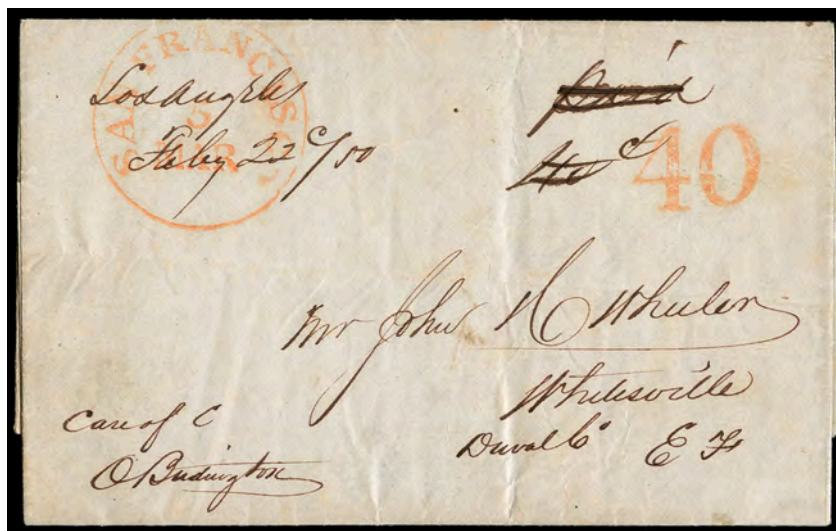 SAN FRANCISCO
MAR
Los Angeles
Feby 22 c/50
Paid
40 c
40
Mr John H Wheeler
Whitesville
Duval Co E F
Care of C
O Budington